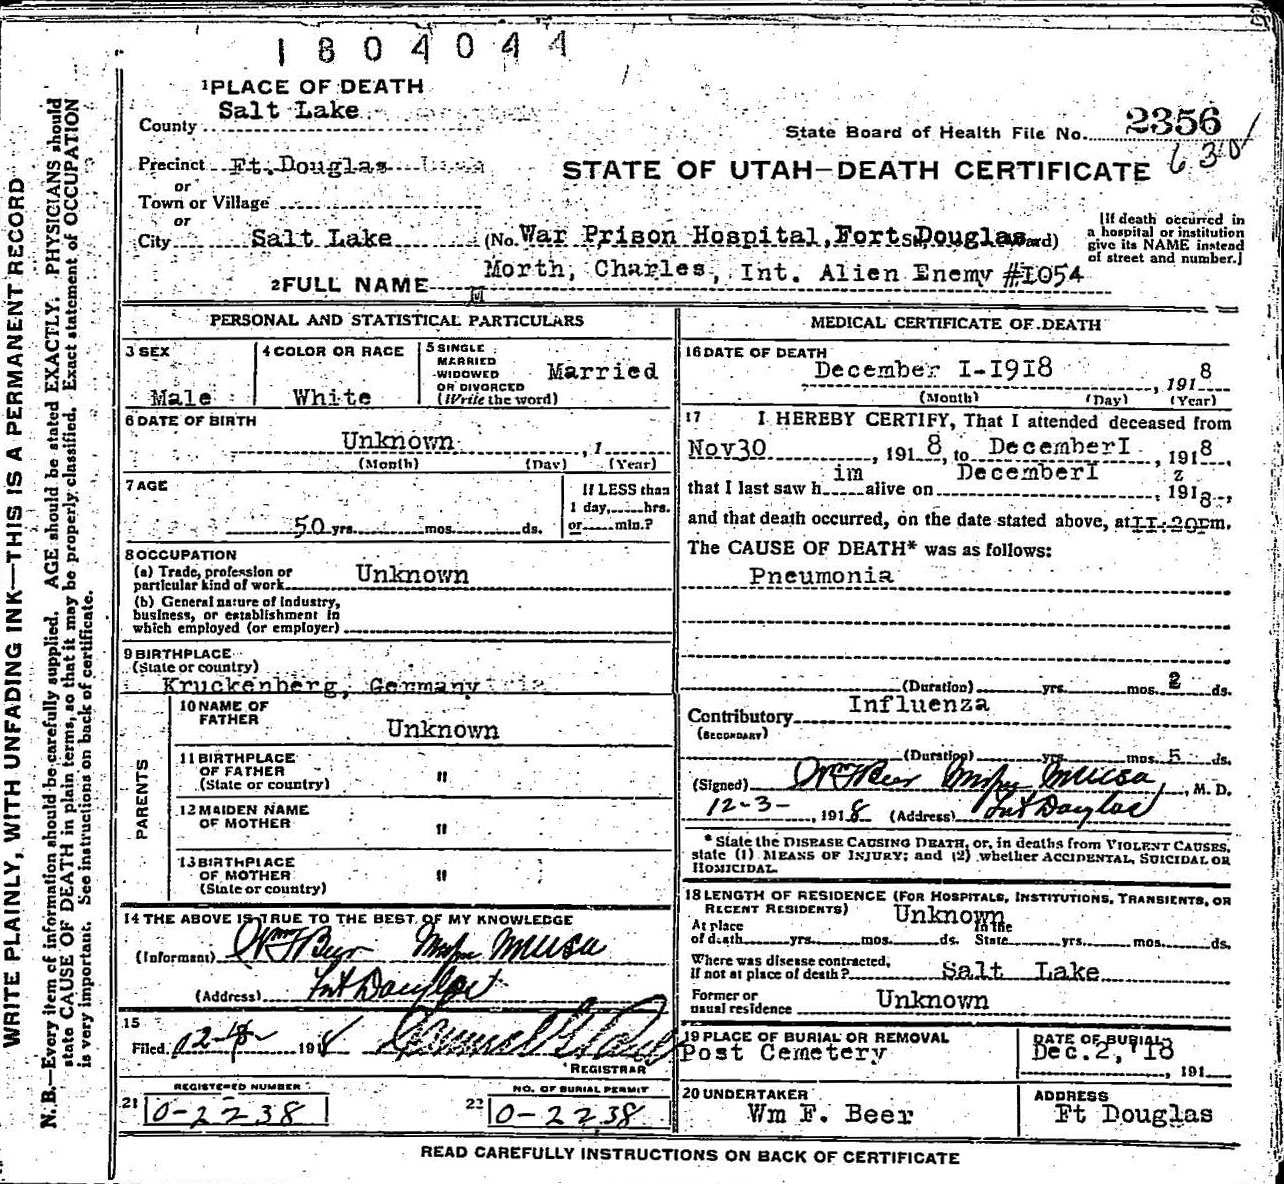 1804044
1 PLACE OF DEATH
County Salt Lake
State Board of Health File No. 2356
630
Precinct Ft.Douglas
or
Town or Village
or
City Salt Lake
STATE OF UTAH—DEATH CERTIFICATE
(No. War Prison Hospital, Fort Douglas
[If death occurred in
a hospital or institution
give its NAME instead
of street and number.]
2 FULL NAME Morth, Charles, Int. Alien Enemy #I054
M
PERSONAL AND STATISTICAL PARTICULARS
3 SEX
Male
4 COLOR OR RACE
White
5 SINGLE
MARRIED
WIDOWED
OR DIVORCED
(Write the word)
Married
6 DATE OF BIRTH
Unknown , 1
(Month) (Day) (Year)
7 AGE
50 yrs. mos. ds.
If LESS than
1 day, hrs.
or min.?
8 OCCUPATION
(a) Trade, profession or
particular kind of work Unknown
(b) General nature of industry,
business, or establishment in
which employed (or employer)
9 BIRTHPLACE
(State or country)
Kruckenberg, Germany
PARENTS
10 NAME OF
FATHER
Unknown
11 BIRTHPLACE
OF FATHER
(State or country) "
12 MAIDEN NAME
OF MOTHER "
13 BIRTHPLACE
OF MOTHER
(State or country) "
14 THE ABOVE IS TRUE TO THE BEST OF MY KNOWLEDGE
(Informant) Wm F Beer
(Address) Fort Douglas
15
Filed 12-4- 1918
REGISTRAR
REGISTERED NUMBER
21 0-2238
NO. OF BURIAL PERMIT
22 0-2238
MEDICAL CERTIFICATE OF DEATH
16 DATE OF DEATH
December I-I9I8 , 191 8
(Month) (Day) (Year)
17 I HEREBY CERTIFY, That I attended deceased from
Nov30 , 191 8, to DecemberI , 1918,
that I last saw h im alive on DecemberI , 1918,
and that death occurred, on the date stated above, at II-20P m.
The CAUSE OF DEATH* was as follows:
Pneumonia
(Duration) yrs. mos. 2 ds.
Contributory Influenza
(SECONDARY)
(Duration) yrs. mos. 5 ds.
(Signed) Wm F Beer , M. D.
12-3- , 1918 (Address) Fort Douglas
* State the DISEASE CAUSING DEATH, or, in deaths from VIOLENT CAUSES,
state (1) MEANS OF INJURY; and (2) whether ACCIDENTAL, SUICIDAL OR
HOMICIDAL.
18 LENGTH OF RESIDENCE (FOR HOSPITALS, INSTITUTIONS, TRANSIENTS, OR
RECENT RESIDENTS) Unknown
At place In the
of death yrs. mos. ds. State yrs. mos. ds.
Where was disease contracted,
if not at place of death? Salt Lake
Former or
usual residence Unknown
19 PLACE OF BURIAL OR REMOVAL
Post Cemetery
DATE OF BURIAL
Dec.2,'I8
, 191
20 UNDERTAKER
Wm F. Beer
ADDRESS
Ft Douglas
READ CAREFULLY INSTRUCTIONS ON BACK OF CERTIFICATE
WRITE PLAINLY, WITH UNFADING INK—THIS IS A PERMANENT RECORD
N. B.—Every item of information should be carefully supplied. AGE should be stated EXACTLY. PHYSICIANS should
state CAUSE OF DEATH in plain terms, so that it may be properly classified. Exact statement of OCCUPATION
is very important. See instructions on back of certificate.